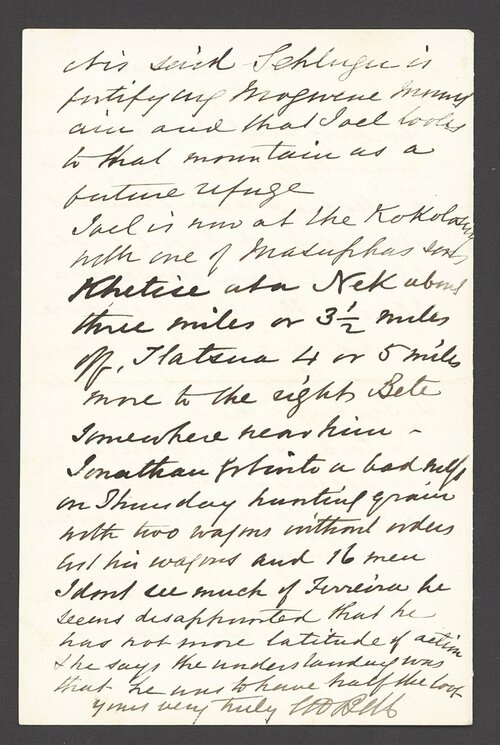 it is said Sehlugu is
fortifying Mogwene Mount
ain and that Joel looks
to that mountain as a
future refuge
Joel is now at the Kokolosing
with one of Masuphas sons
Khetise at a Nek about
three miles or 3½ miles
off, Tlatsua 4 or 5 miles
more to the right Bete
Somewhere near him -
Jonathan got into a bad
on Thursday hunting grain
with two wagons without orders
lost his wagons and 16 men
I dont see much of Ferreira he
seems disappointed that he
has not more latitude of action
& he says the understanding was
that he was to have half the loot
yours very truly